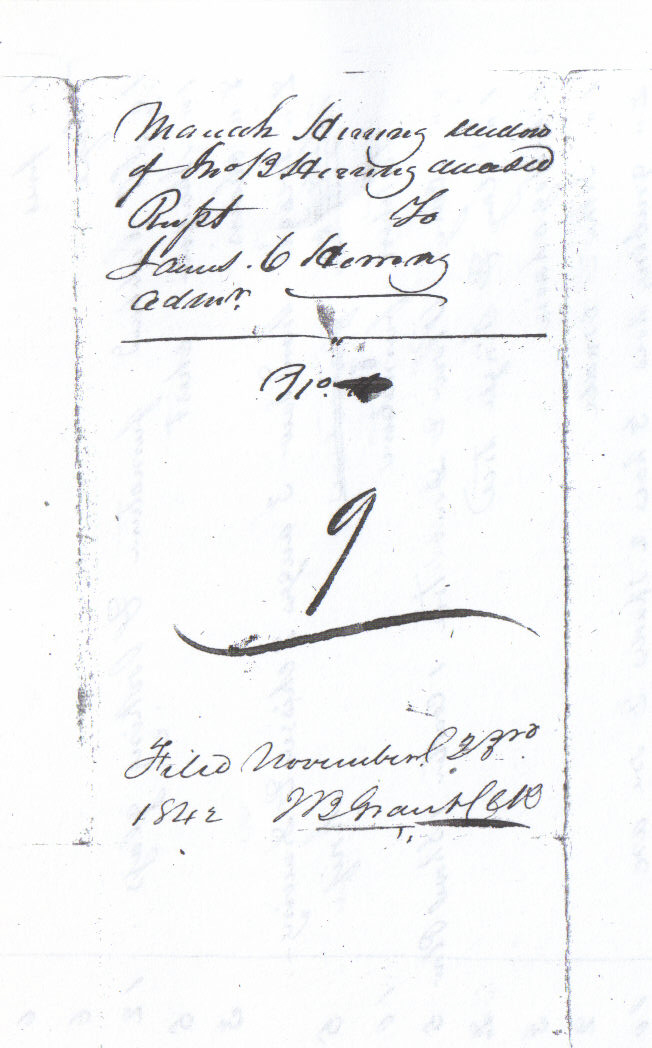 Herring Widow
of Jno B Herring deceased
Rcpt To
James C Herring
Admr.
No.
9
Filed November 23rd
1842 W B Grant Clk